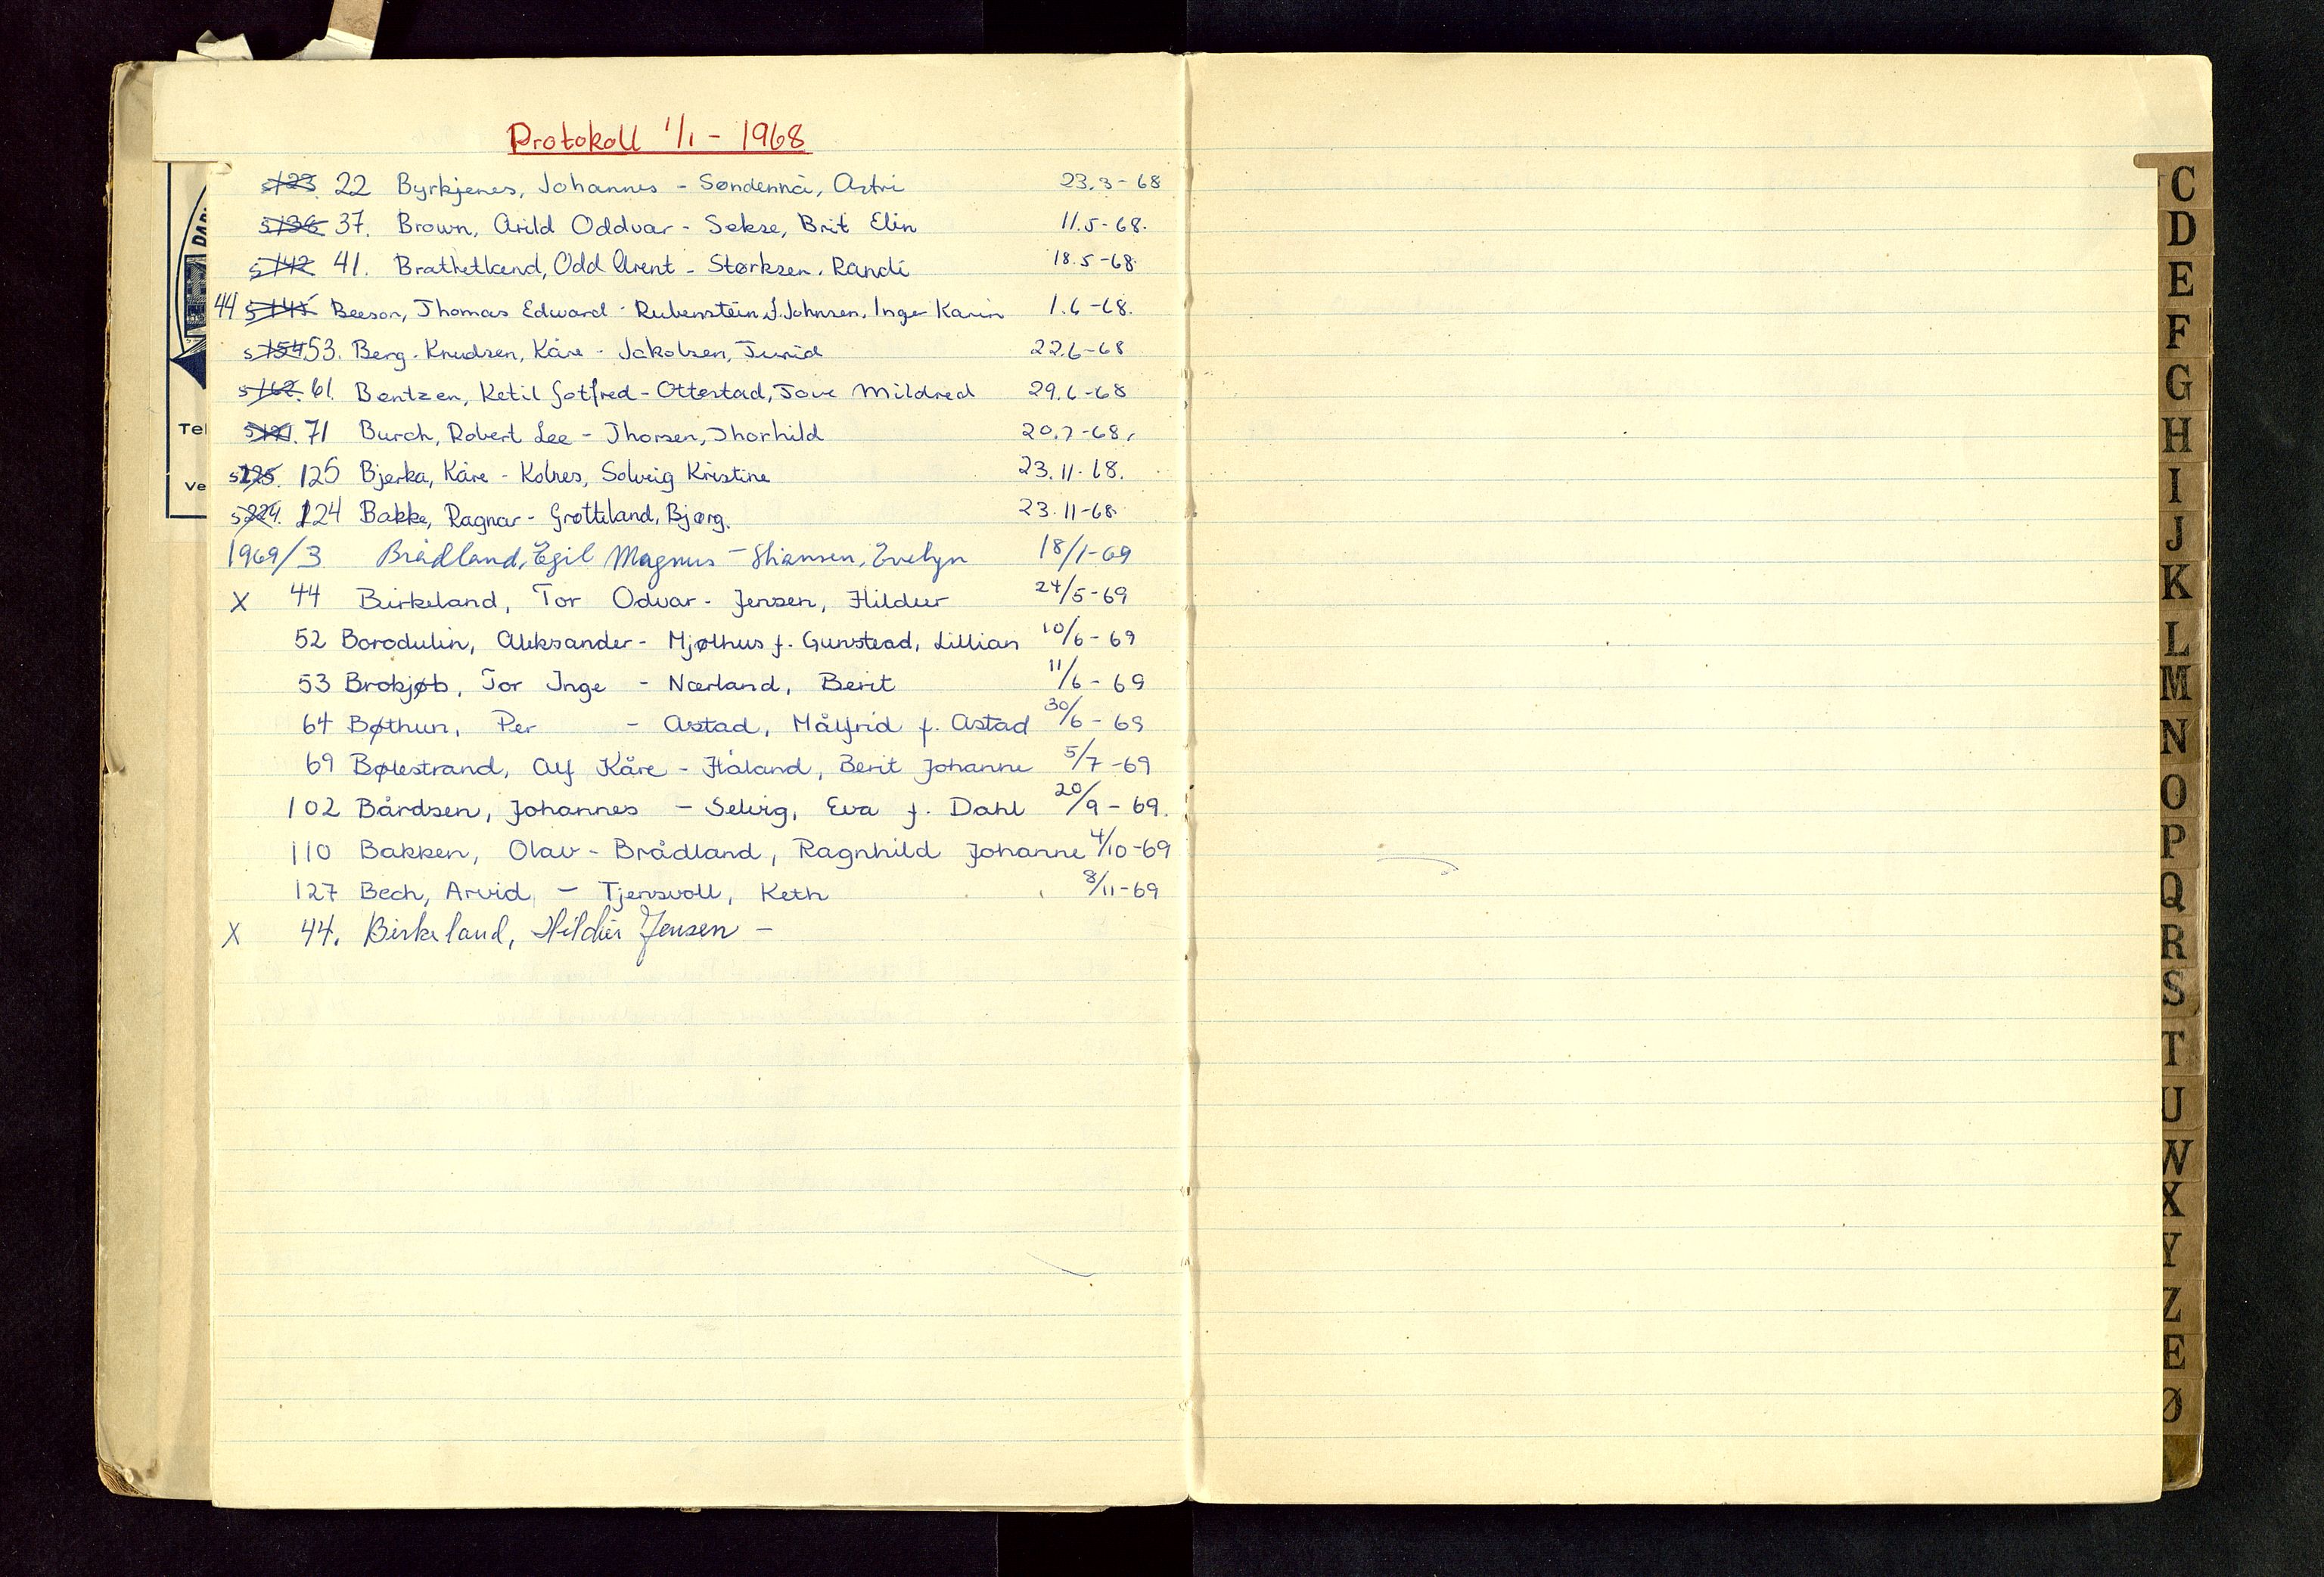 Protokoll 1/1 - 1968
s 123 22 Byrkjenes, Johannes - Søndennå, Astri 23.3-68
s 136 37. Brown, Arild Oddvar - Sekse, Brit Elin 11.5-68.
s 142 41. Brathetland, Odd Arent - Størksen, Randi 18.5-68.
44 s 145 Beeson, Thomas Edward - Rubenstein f. Johnsen, Inger Karin 1.6-68.
s 154 53. Berg-Knudsen, Kåre - Jakobsen, Turid 22.6-68
s 162. 61. Bentzen, Ketil Gotfred - Ottestad, Tove Mildred 29.6-68
71 Burch, Robert Lee - Thorsen, Thorhild 20.7-68.
s 125. 125 Bjerka, Kåre - Kolnes, Solveig Kristine 23.11-68.
s 224. 124 Bakke, Ragnar - Grøtteland, Bjørg. 23.11-68
1969/3 Brådland, Egil Magnus - Stiansen, Evelyn 18/1-69
X 44 Birkeland, Tor Odvar - Jensen, Hildur 24/5-69
52 Borodulin, Aleksander - Mjølhus f. Gunstead, Lillian 10/6-69
53 Brokjøb, Tor Inge - Nærland, Berit 11/6-69
64 Bøthun, Per - Astad, Målfrid f. Astad 30/6-69
69 Bølestrand, Alf Kåre - Håland, Berit Johanne 5/7-69
102 Bårdsen, Johannes - Selvig, Eva f. Dahl 20/9-69.
110 Bakken, Olav - Brådland, Ragnhild Johanne 4/10-69
127 Bech, Arvid - Tjensvoll, Keth 8/11-69
X 44. Birkeland, Hildur Jensen -
DAP
Tel
Ve
C
D
E
F
G
H
I
J
K
L
M
N
O
P
Q
R
S
T
U
W
X
Y
Z
Æ
Ø